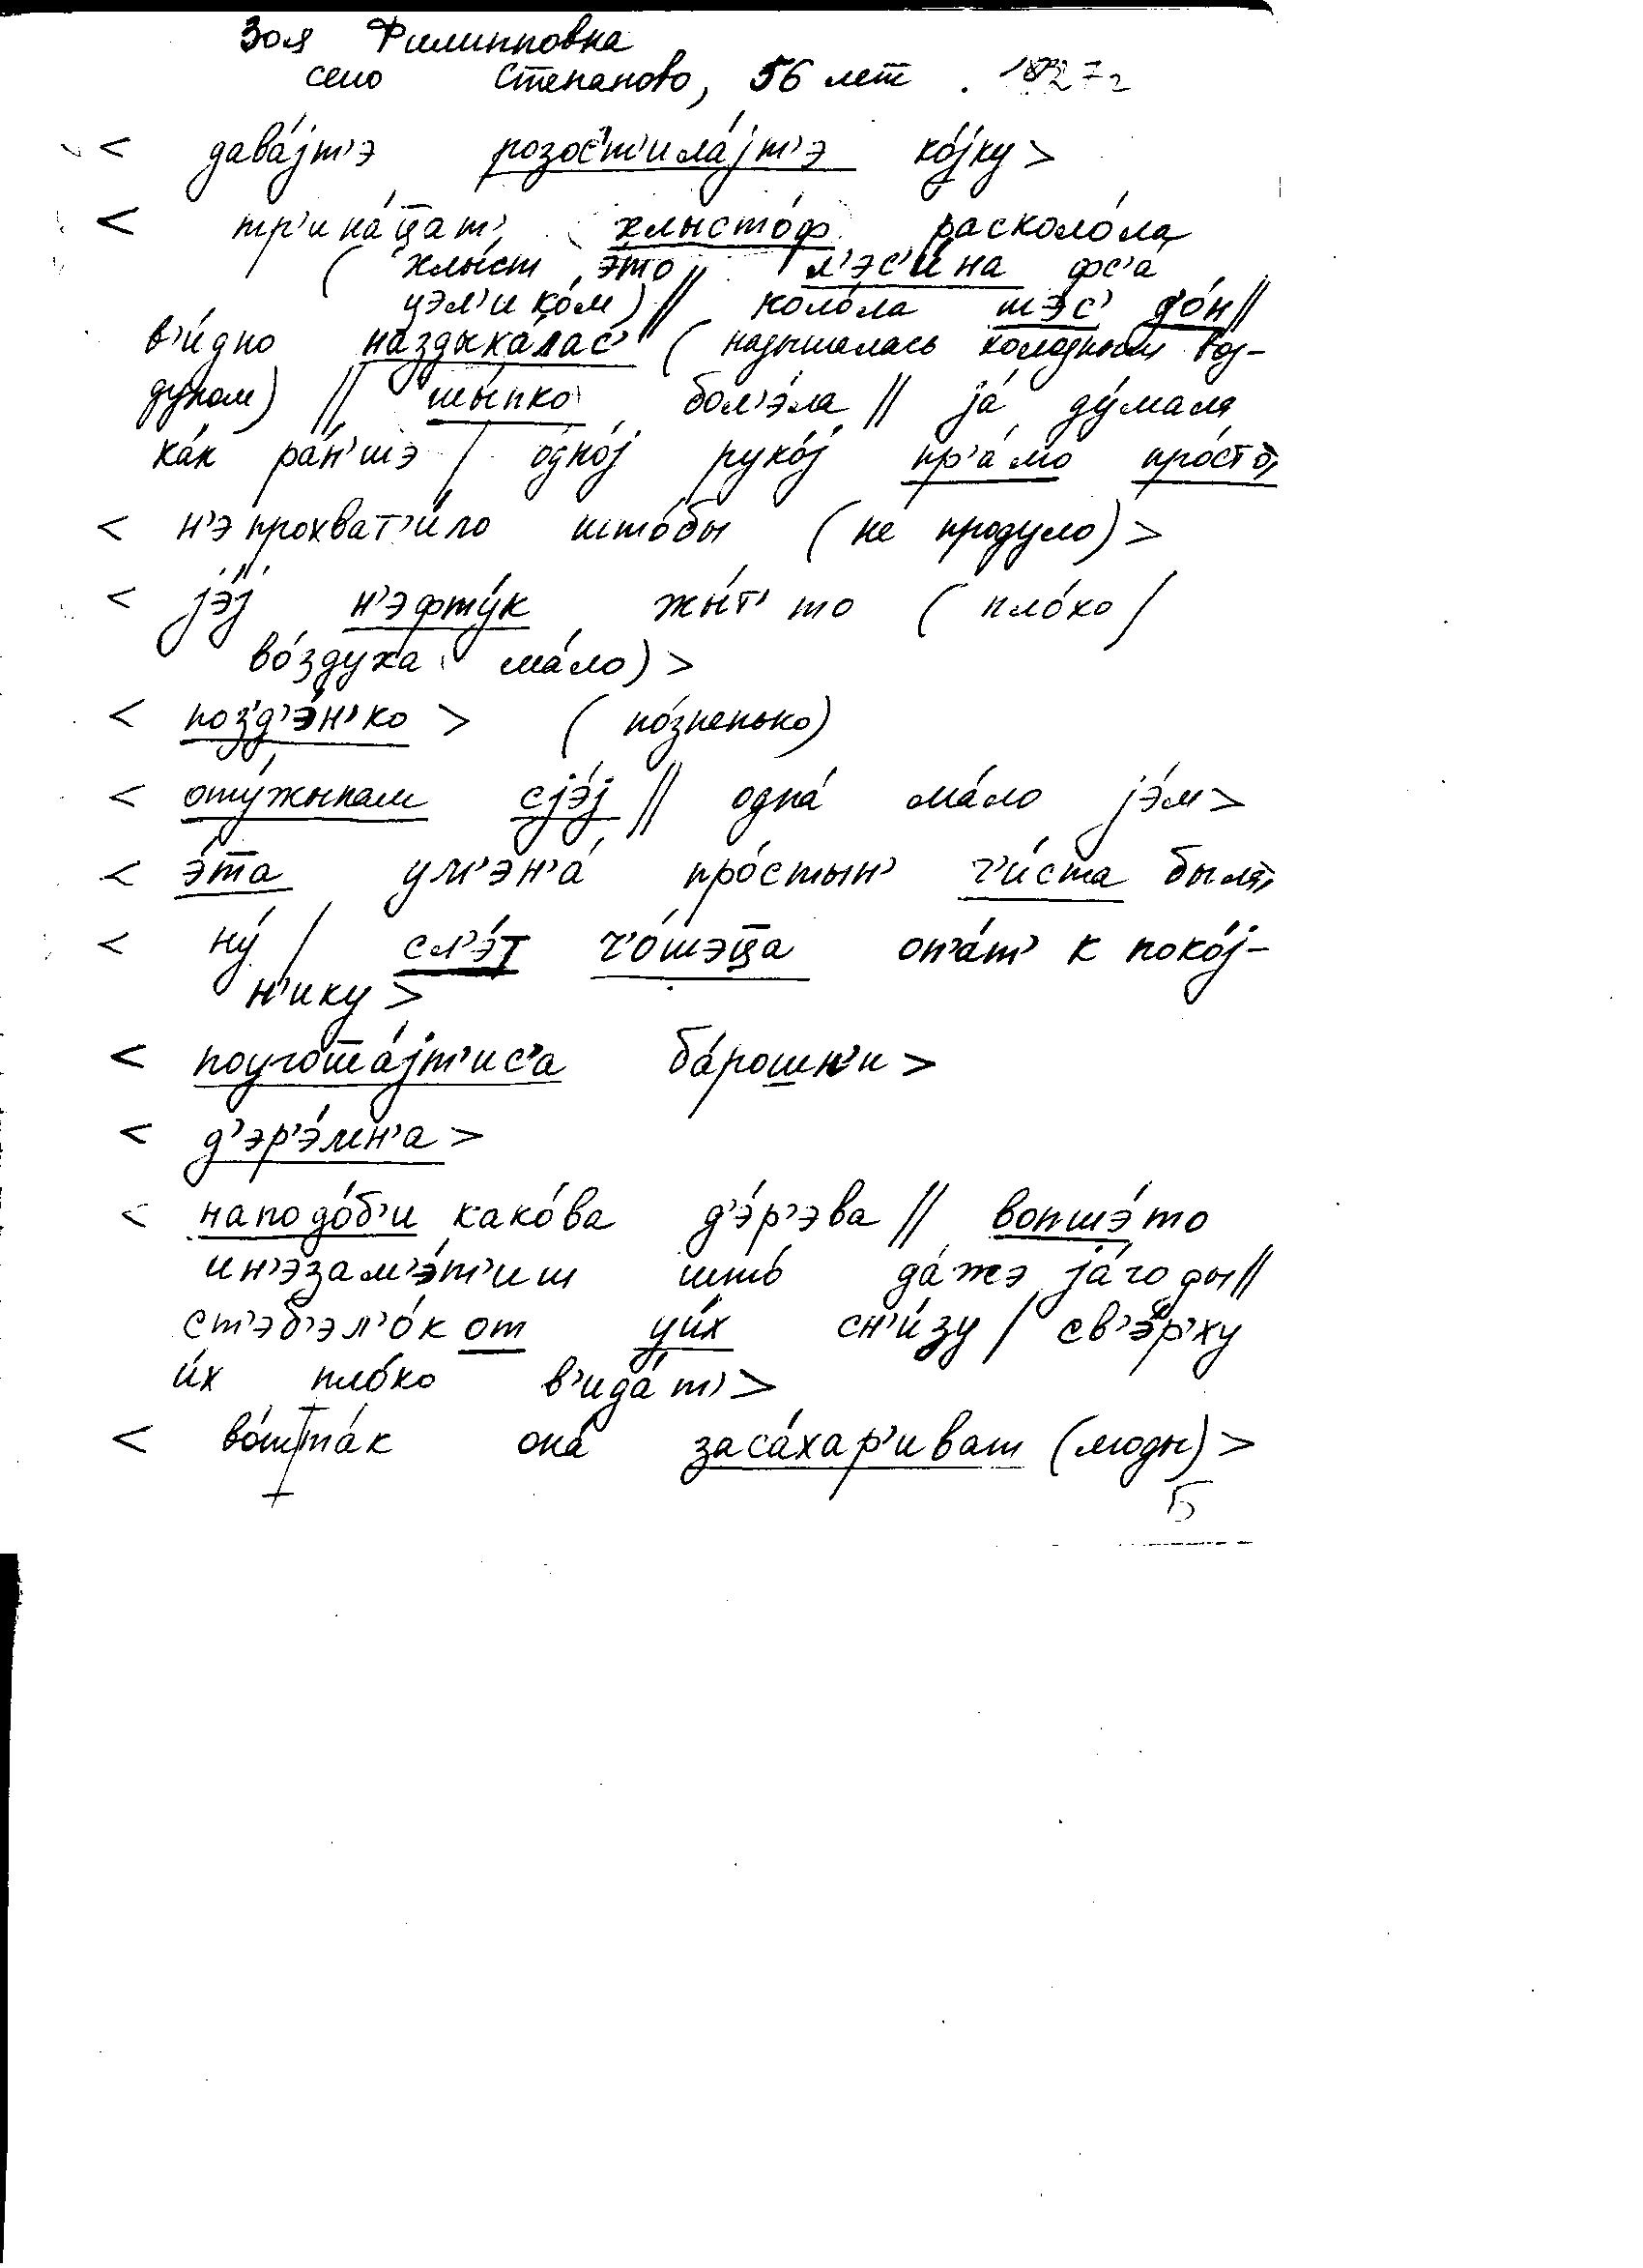 Зоя Филипповна
село Степаново, 56 лет. 1927г
< дава́јт'э розос'т'ила́јт'э ко́јку >
< тр'ина́ц̅ат' хлысто́ф расколо́ла
( хлы́ст э́то // л'эс'и́на фс'а́
цэл'ико́м) // коло́ла шэ́с' до́н //
в'и́дно наздыка́лас' ( надышалась холодным воз-
духом) // шы́пко бол'э́ла // ја́ ду́мала
ка́к ра́н'шэ / одно́ј руко́ј пр'а́мо про́сто >
< н'э прохват'и́ло што́бы ( не продуло) >
< јэ́ј н'эфту́к жы́т' то ( пло́хо /
во́здуха ма́ло) >
< поз'д'э́н'ко > ( по́зненько)
< оту́жынам с јэ́ј // одна́ ма́ло јэ́м >
< э́та у м'эн'а́ про́стын' ч'и́ста была >
< ну́ / сл'э́т ч'о́шэц̅а оп'а́т' к поко́ј-
н'ику >
< поугота́јт'ис'а ба́рошн'и >
< д'эр'э́мн'а >
< наподо́б'и како́ва д'э́р'эва // вопшэ́то
и н'э зам'э́т'иш што́ да́жэ ја́годы //
ст'эб'эл'о́к от у и́х сн'и́зу / св'э́р'ху
и́х пло́хо в'ида́т' >
< во́т та́к она́ заса́хар'иват (моды) >
5